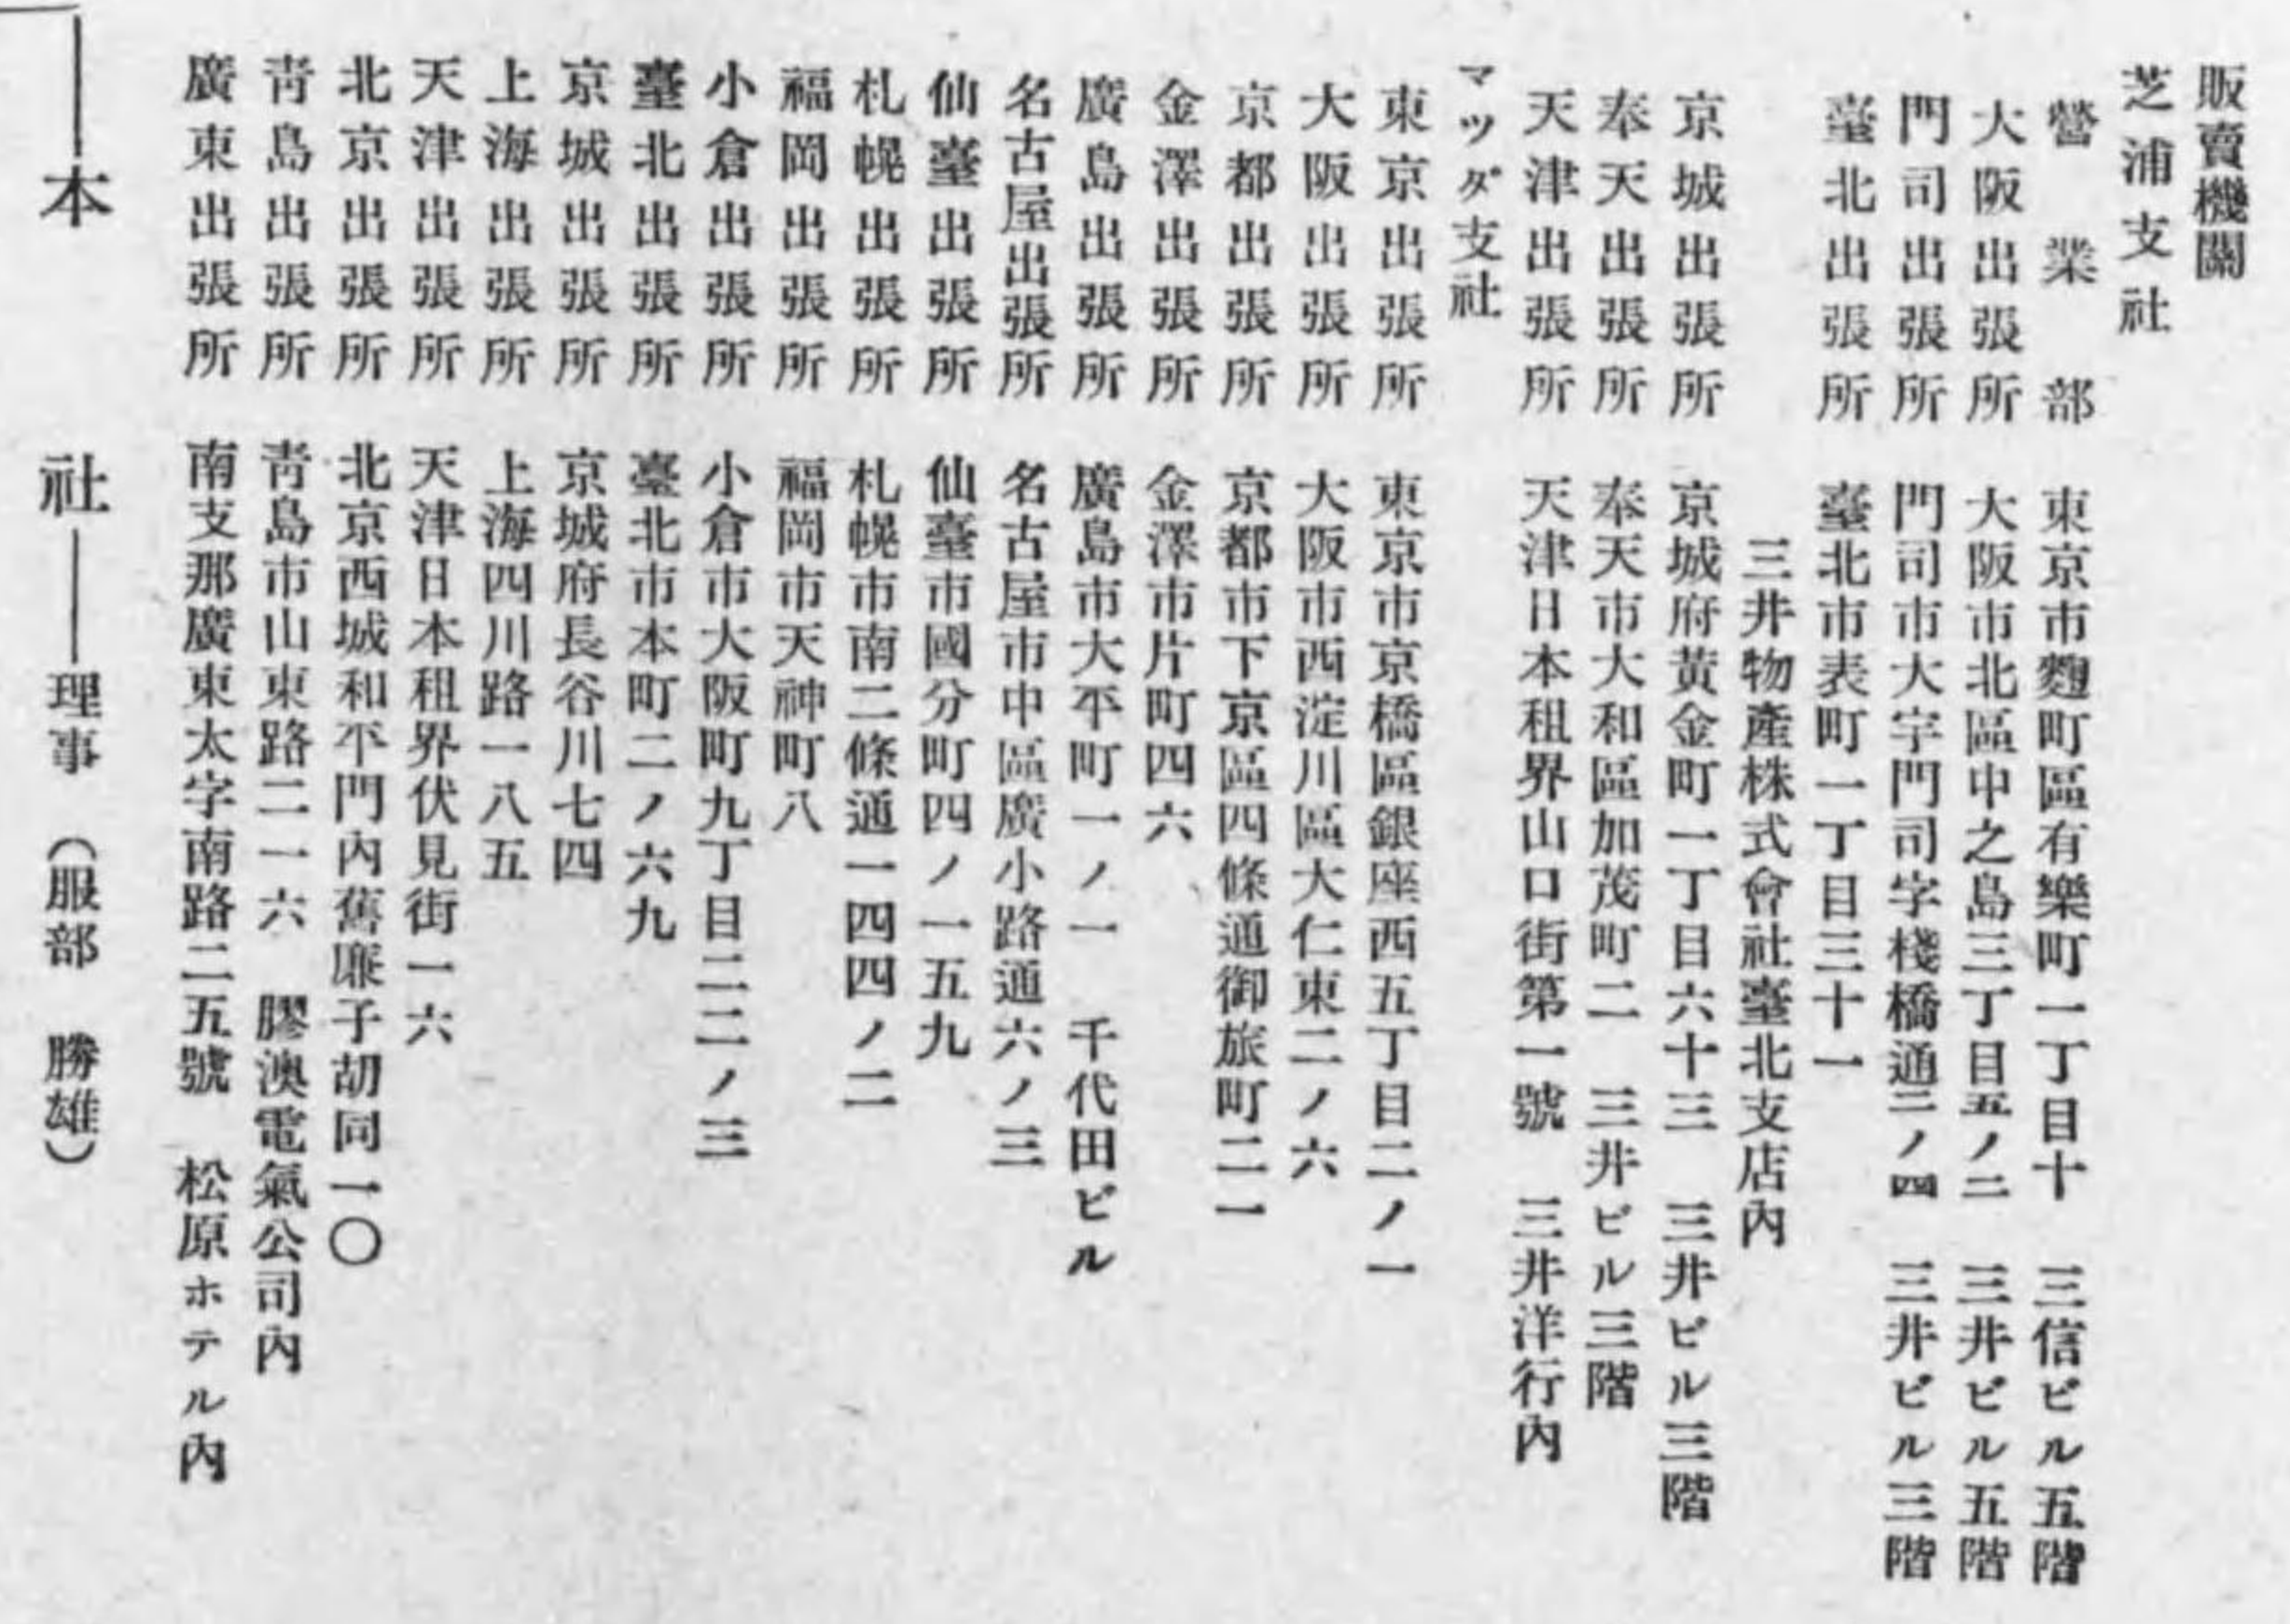 販賣機關
芝浦支社
營業部 東京市麴町區有樂町一丁目十 三信ビル五階
大阪出張所 大阪市北區中之島三丁目五ノ二 三井ビル五階
門司出張所 門司市大字門司字棧橋通三ノ四 三井ビル三階
臺北出張所 臺北市表町一丁目三十一
三井物產株式會社臺北支店內
京城出張所 京城府黃金町一丁目六十三 三井ビル三階
奉天出張所 奉天市大和區加茂町二 三井ビル三階
天津出張所 天津日本租界山口街第一號 三井洋行內
マツダ支社
東京出張所 東京市京橋區銀座西五丁目二ノ一
大阪出張所 大阪市西淀川區大仁東二ノ六
京都出張所 京都市下京區四條通御旅町二一
金澤出張所 金澤市片町四六
廣島出張所 廣島市大平町一ノ一 千代田ビル
名古屋出張所 名古屋市中區廣小路通六ノ三
仙臺出張所 仙臺市國分町四ノ一五九
札幌出張所 札幌市南二條通一四四ノ二
福岡出張所 福岡市天神町八
小倉出張所 小倉市大阪町九丁目二二ノ三
臺北出張所 臺北市本町二ノ六九
京城出張所 京城府長谷川七四
上海出張所 上海四川路一八五
天津出張所 天津日本租界伏見街一六
北京出張所 北京西城和平門內舊廉子胡同一〇
靑島出張所 靑島市山東路二一六 膠澳電氣公司內
廣東出張所 南支那廣東太字南路二五號 松原ホテル內
本社──理事（服部 勝雄）